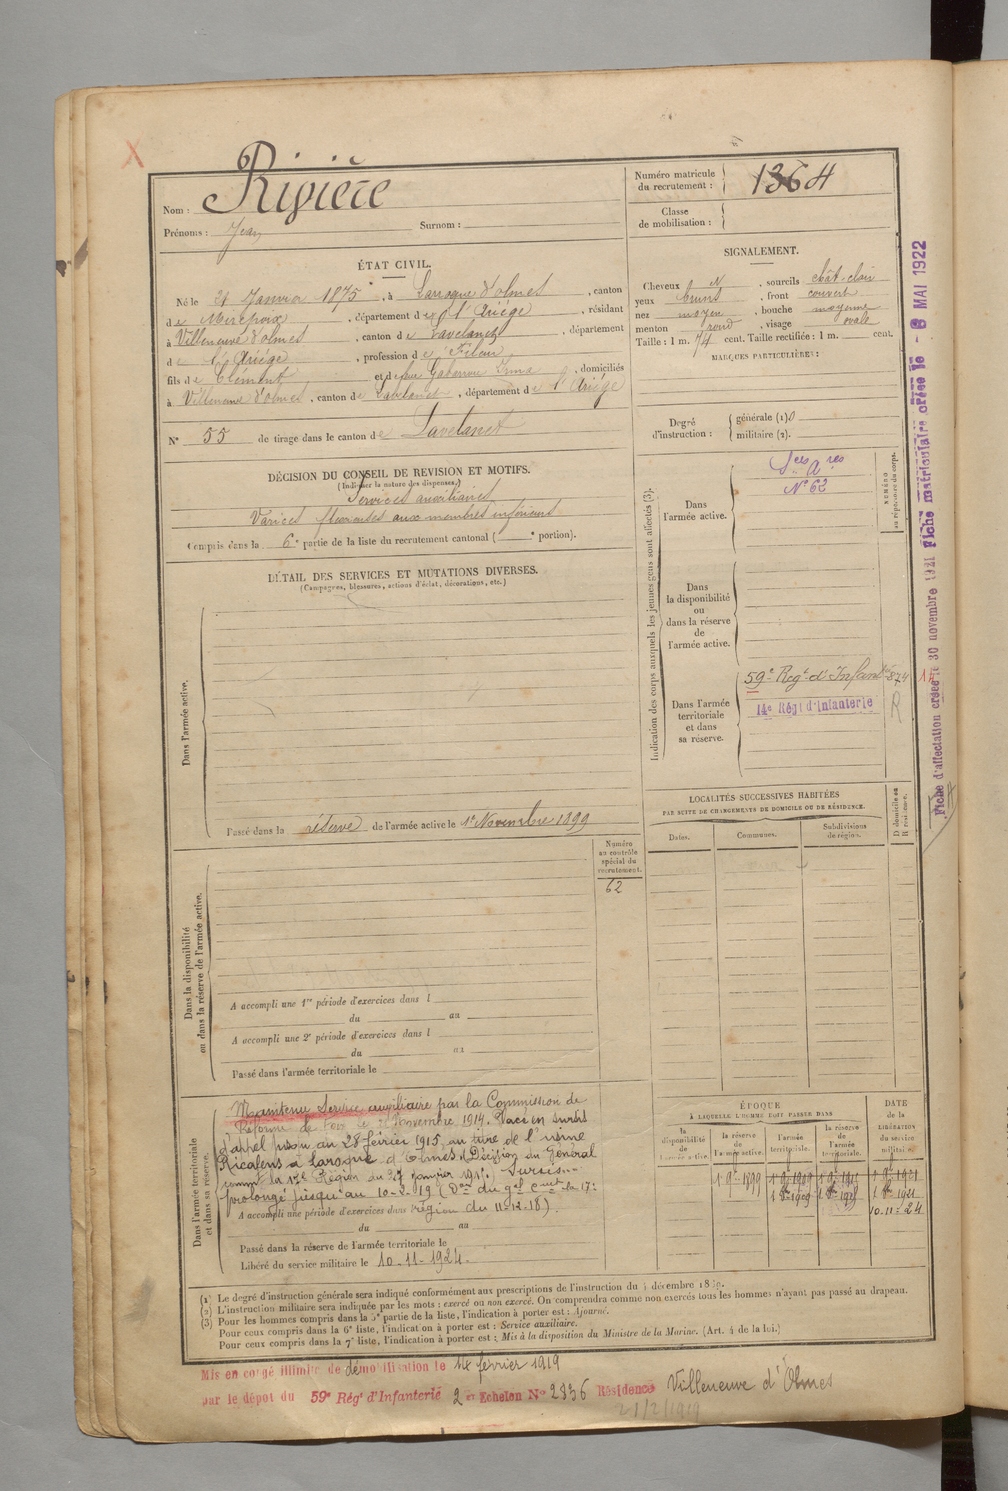 Nom : Rivière
Prénoms : Jean Surnom :
Numéro matricule
du recrutement : 1364
Classe
de mobilisation :
ÉTAT CIVIL.
Né le 21 Janvier 1875, à Laroque d'olmes, canton
de Mirepoix, département de l'Ariège, résidant
à Villeneuve d'olmes, canton de Lavelanet, département
de l'Ariège, profession de Fileur
fils de Clément et de Gabarrou, domiciliés
à Villeneuve d'olmes, canton de Lavelanet, département de l'Ariège
N° 55 de tirage dans le canton de Lavelanet
SIGNALEMENT.
Cheveux N, sourcils chât-clair
yeux bruns, front couvert
nez moyen, bouche moyenne
menton rond, visage ovale
Taille : 1 m. 74 cent. Taille rectifiée : 1 m. cent.
MARQUES PARTICULIÈRES :
Degré
d'instruction :
générale (1)
militaire (2).
DÉCISION DU CONSEIL DE REVISION ET MOTIFS.
(Indiquer la nature des dispenses.)
Services auxiliaires
Varices aux membres inférieurs
Compris dans la 6e partie de la liste du recrutement cantonal ( e portion).
DÉTAIL DES SERVICES ET MUTATIONS DIVERSES.
(Campagnes, blessures, actions d'éclat, décorations, etc.)
Dans l'armée active.
Passé dans la réserve de l'armée active le 1er Novembre 1899
Indication des corps auxquels les jeunes gens sont affectés (3).
NUMÉRO
au répertoire du corps.
Dans
l'armée active.
Ses Ares
N° 62
Dans
la disponibilité
ou
dans la réserve
de
l'armée active.
Dans l'armée
territoriale
et dans
sa réserve.
59e Régt d'Infant
14e Régt d'Infanterie
R
LOCALITÉS SUCCESSIVES HABITÉES
PAR SUITE DE CHANGEMENTS DE DOMICILE OU DE RÉSIDENCE.
Dates. Communes. Subdivisions
de région.
D domicile ou
R résidence.
Numéro
au contrôle
spécial du
recrutement.
62
Dans la disponibilité
ou dans la réserve de l'armée active.
A accompli une 1re période d'exercices dans l
du au
A accompli une 2e période d'exercices dans l
du au
Passé dans l'armée territoriale le
Dans l'armée territoriale
et dans sa réserve.
Maintenu Service auxiliaire par la Commission de
Réforme de Foix le Novembre 1914. Placé en sursis
d'appel jusqu'au 28 février 1915 au titre de l'usine
Ricalens à Laroque d'Olmes (Décision du Général
commt la 17e Région du 27 janvier 1915). Sursis
prolongé jusqu'au 10-2-19 (Don du gal cmdt la 17e
A accompli une période d'exercices dans région du 11-12-18).
du au
Passé dans la réserve de l'armée territoriale le
Libéré du service militaire le 10-11-1924.
ÉPOQUE
À LAQUELLE L'HOMME DOIT PASSER DANS
la
disponibilité
de
l'armée active.
la réserve
de
l'armée active.
l'armée
territoriale.
la réserve
de
l'armée
territoriale.
DATE
de la
LIBÉRATION
du service
militaire.
1 9bre 1899 1 9bre 1909 1 9bre 1915 1 9bre 1921
10-11-24
(1) Le degré d'instruction générale sera indiqué conformément aux prescriptions de l'instruction du 4 décembre 1889.
(2) L'instruction militaire sera indiquée par les mots : exercé ou non exercé. On comprendra comme non exercés tous les hommes n'ayant pas passé au drapeau.
(3) Pour les hommes compris dans la 5e partie de la liste, l'indication à porter est : Ajourné.
Pour ceux compris dans la 6e liste, l'indication à porter est : Service auxiliaire.
Pour ceux compris dans la 7e liste, l'indication à porter est : Mis à la disposition du Ministre de la Marine. (Art. 4 de la loi.)
Mis en congé illimité de démobilisation le 14 février 1919
par le dépôt du 59e Régt d'Infanterie 2e Echelon No 2336 Résidence Villeneuve d'Olmes
21/2/1919
Fiche d'affectation créée le 30 novembre 1921 Fiche matriculaire créée le - 8 MAI 1922